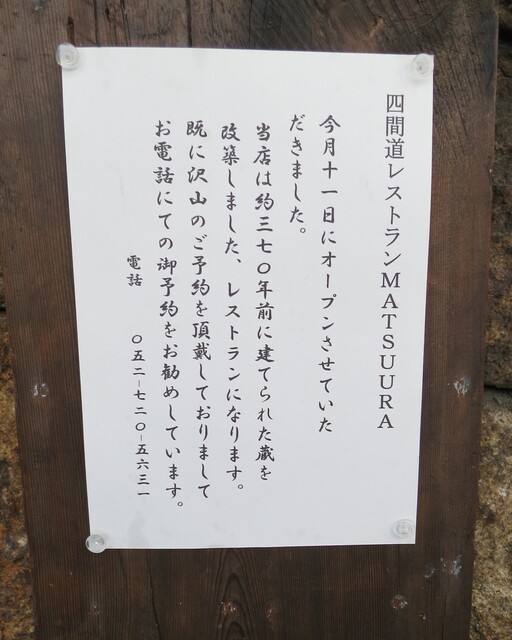 四間道レストランMATSUURA
今月十一日にオープンさせていた
だきました。
当店は約三七〇年前に建てられた蔵を
改築しました、レストランになります。
既に沢山のご予約を頂戴しておりまして
お電話にての御予約をお勧めしています。
電話 〇五二-七二〇-五六三一